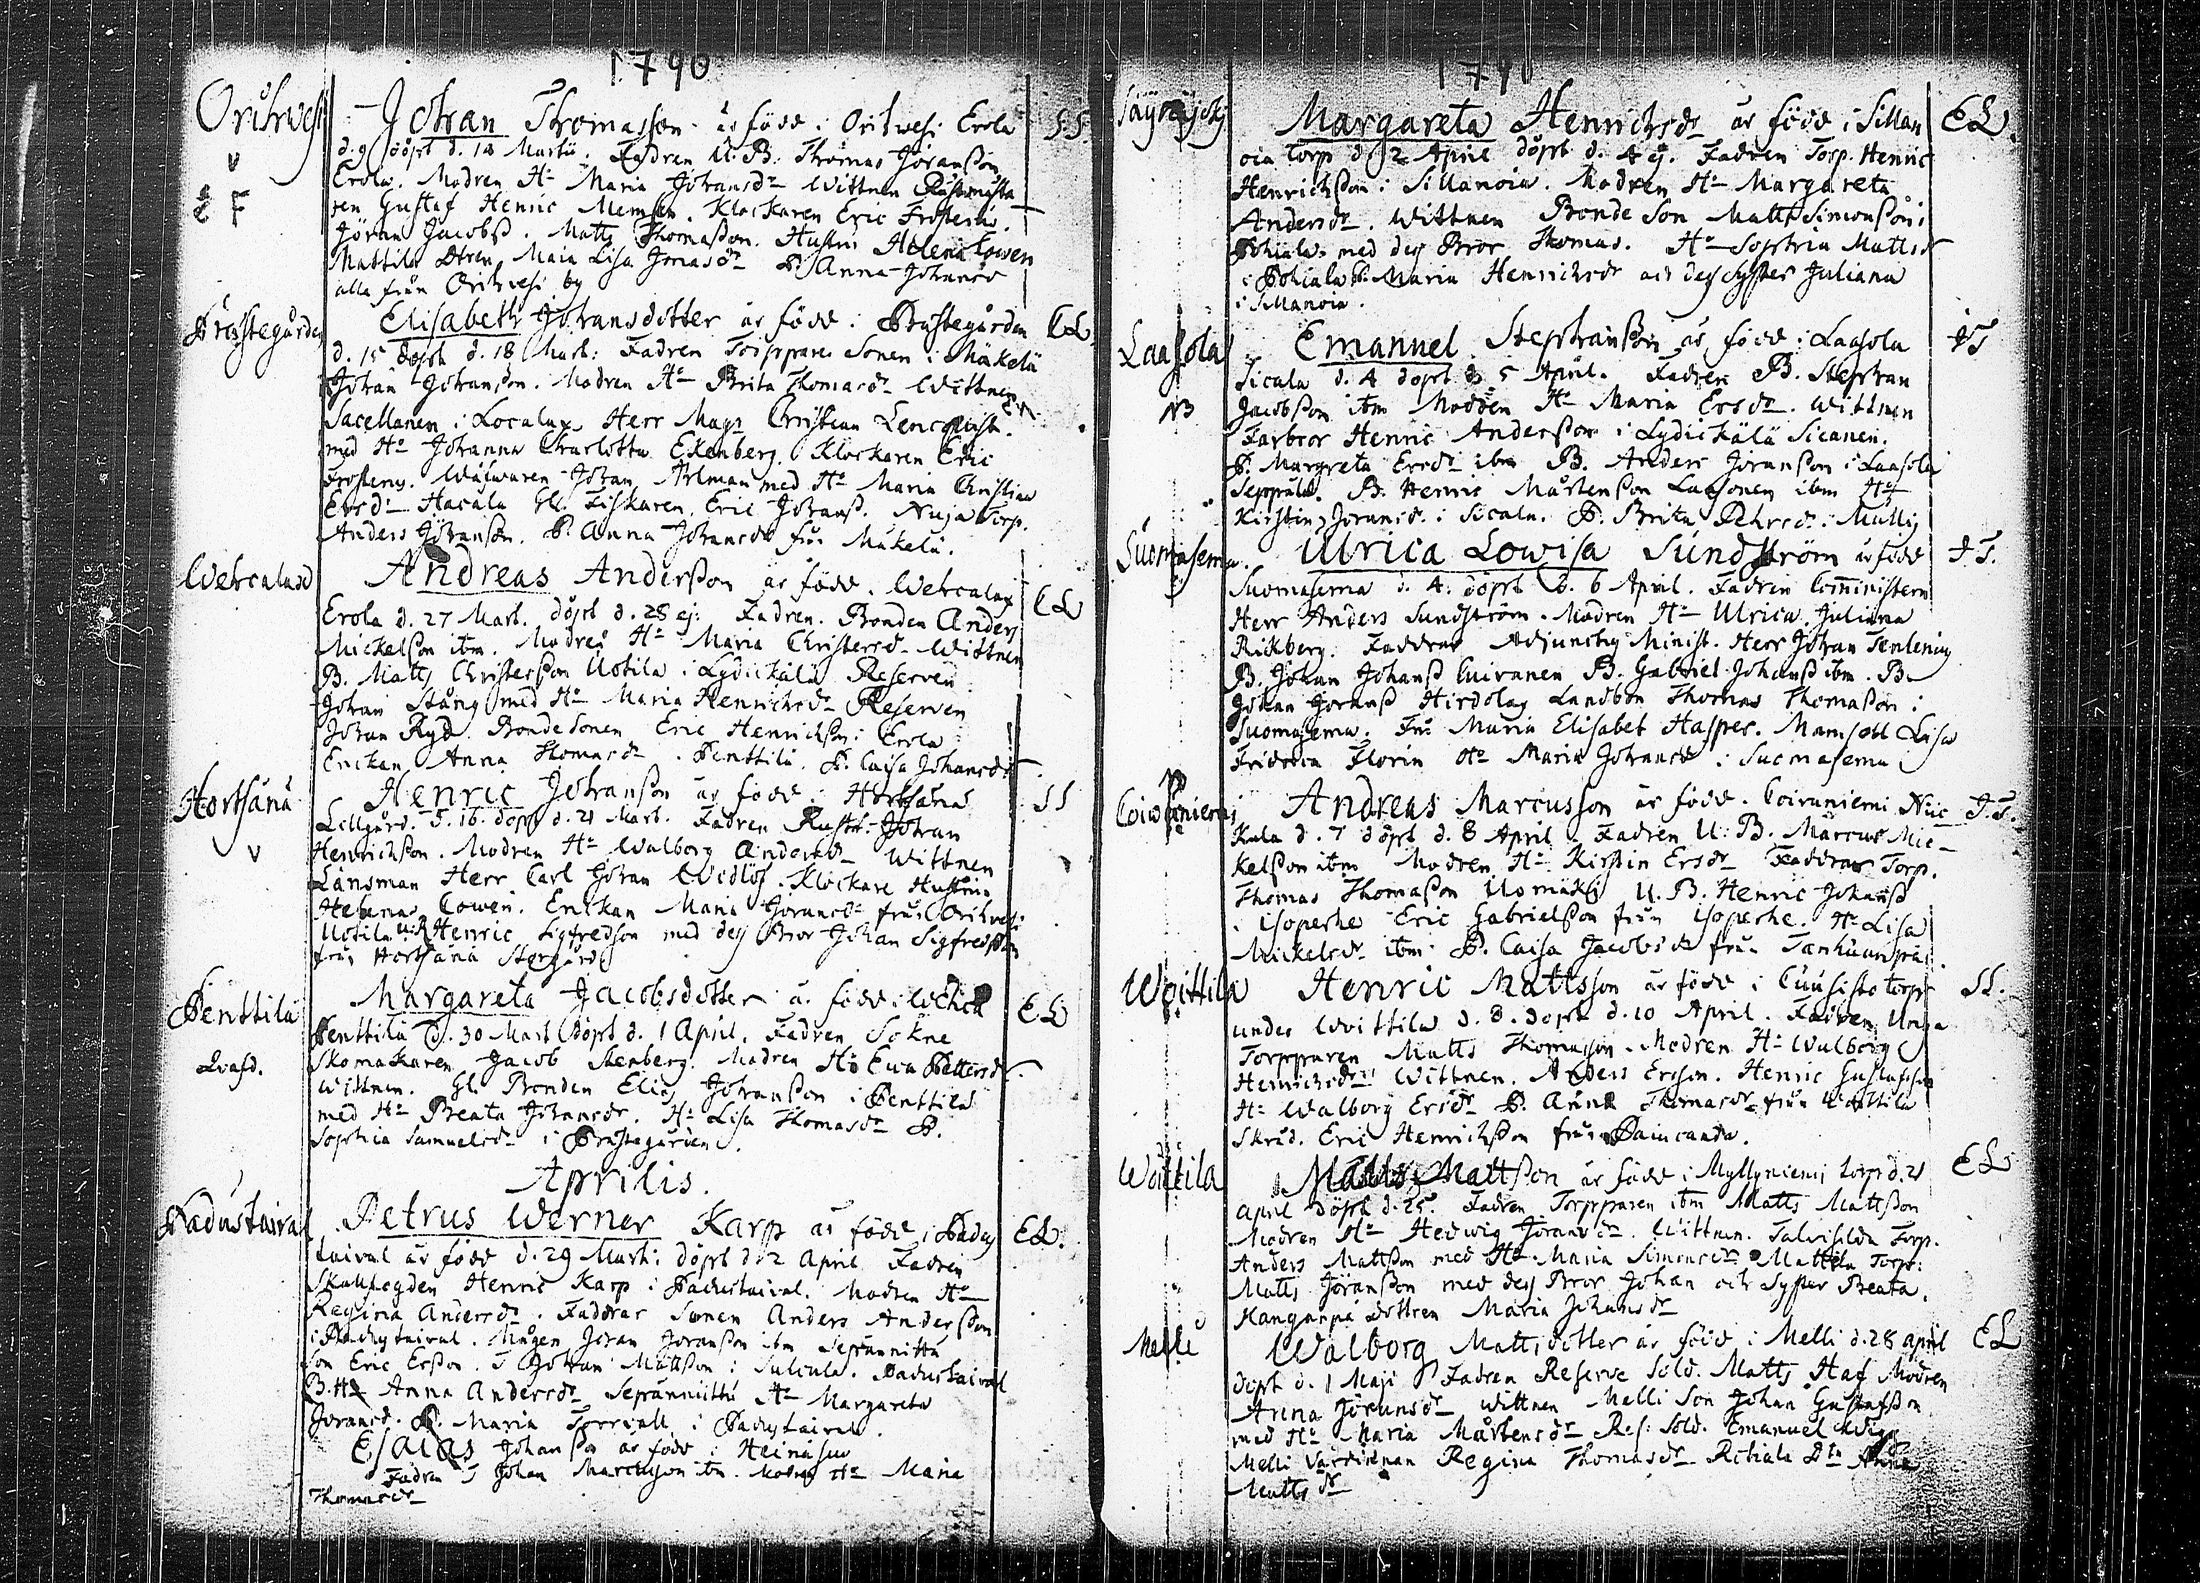 1790
Orihwesi Johan Thomasson är född i Orihwesi Erola S.S.
d. 9 döpt d. 14 Martii. Fadren U. B. Thomas Johansson
v
Erola. Modren H:u Maria Johansdr Wittnen Rustmästa
ren Gustaf Henric Memsen. Klockaren Eric Frosterus.
F
Jöran Jacobss. Matts Thomasson. Hustru Helena Cowen
Mattila Dtren Maia Lisa Jonasdr P. Anna Johansdr
alla från Orihwesi by
Prästegården Elisabeth Johansdotter är född i Prästegården EL
d. 15 döpt d. 18 Mart: Fadren Torpparesonen i Mäkelä
Johan Johansson. Modren H:u Brita Thomasdr Wittnen
Sacellanen i Localax Herr Mag: Christian Lencqvist
med H:u Johanna Charlotta Ekenberg. Klockaren Eric
Frosterus. Wäfwaren Johan Ahlman med H:u Maria Christina
Ersdr Hacala Gl. Fiskaren Eric Johanss. Nuja Torp.
Anders Johansson. P. Anna Johansdr från Mäkelä.
Wehcalax Andreas Andersson är född i Wehcalax EL
Erola d. 27 Mart. döpt d. 28 ej: Fadren Bonden Anders
Mickelsson ibm. Modren H:u Maria Christersdr Wittnen
B. Matts Christersson Uotila i Lydickälä Reserven
Johan Stång med H:u Maria Henrichsdr Reserven
Johan Ryd. Bondesonen Eric Henrichsson i Erola
Enckan Anna Thomasdr Penttilä. P. Caisa Johansdr
Hortsänä Henric Johansson är född i Hortsänä SS
Lillgård. d. 16. döpt d. 21 Mart. Fadren Rusth: Johan
v
Henrichsson. Modren H:u Walborg Andersdr Wittnen
Länsman Herr Carl Göran Widlöf. Klockare Hustrun
Helena Cowen. Enckan Maria Joransdr från Orihwesi
Uotila Henric Sigfredson med dess Bror Johan Sigfredsson
från Hortsänä Storgård
Penttilä Margareta Jacobsdotter är född i EL
Penttilä d. 30 Mart döpt d. 1 April. Fadren Sokne
Skomakaren Jacob Stenberg. Modren H:u Ewa Pettersdr
Wittnen. Gl. Bonden Elias Johansson i Penttilä
med H:u Beata Johansdr. H:u Lisa Thomasdr P.
Sophia Samuelsdr i Prästegården.
Aprilis.
Padustaival Petrus Werner Karp är född i Padus EL.
taival är född d. 29 Mart: döpt d. 2 April Fadren
Skallfogden Henric Karp i Padustaival. Modren H:u
Regina Andersdr. Faddrar Sonen Anders Andersson
i Padustaival. Mågen Johan Joransson ibm Sepännittu
Son Eric Ersson. Johan Mattsson i Sulcula. Padustaival
Anna Andersdr Sepänniittu H:u Margareta
Joransd. P. Maria i Padustaival.
Esaias Johansson är född i Heinäsuo
Fadren Johan Marcusson ibm. Modren H:u Maria
Thomasdr
1790
Säynäjoki Margareta Henrichsdr är född i Sillan EL.
oia torp d. 2 April döpt d. 4 ej. Fadren Torp. Henric
Henrichsson i Sillanoia. Modren H:u Margareta
Andersdr. Wittnen Bonde Son Matts Simonsson i
Pohiala med dess Bror Thomas. H:u Sophia Mattsdr
i Pohiala P. Maria Henrichsdr och dess syster Juliana
i Sillanoia.
Laasola Emanuel Stephansson är född i Laasola
Sicala d. 4 döpt d. 5 April. Fadren B. Stephan
NB
Jacobsson ibm Modren H:u Maria Ersdr. Wittnen
Farbror Henric Andersson i Lydickälä Sicanen.
P. Margreta Ersdr ibm B. Anders Joransson i Laasola
Seppälä. B. Henric Mårtensson Laasonen ibm H:u
Kirstin Joransdr. i Sicala. P. Brita Pehrsdr.
Suomasema Ulrica Lowisa Sundström är född
Suomasema d. 4. döpt d. 6 April. Fadren Comministern
Herr Anders Sundström. Modren H:u Ulrica Juliana
Rikberg. Faddrar Adjunctus Minist. Herr Johan Tenlenius
B. Johan Johanss Cuivanen B. Gabriel Johanss ibm. B.
Johan Joranss Hirdolax Landbon Thomas Thomasson i
Suomasema. Fru Maria Elisabet Hasper. Mamsell Lisa
Fridrica Florin H:u Maria Johansdr i Suomasema
NB
Coivuniemi Andreas Marcusson är född i Coivuniemi
Kala d. 7 döpt d. 8 April. Fadren U. B. Marcus Mic-
kelsson ibm Modren H:u Kirstin Ersdr Faddrar Torp.
Thomas Thomasson Uomäki U. B. Henric Johanss
i Isoperhe Eric Gabrielsson från Isoperhe. H:u Lisa
Mickelsdr ibm P. Caisa Jacobsdr från
Woittila Henric Mattsson är född i torp SS.
under Woittila d. 8. döpt d. 10 April. Fadren Unga
Torpparen Matts Thomasson. Modren H:u Walborg
Henrichsdr Wittnen. Anders Ersson. Henric Gustafsson
H:u Walborg Ersdr P. Anna Thomasdr från Woittila
Skräd. Eric Henrichsson från
Woittila Matts Mattsson är född i Myllyniemi torp d. 21 EL
April döpt d. 25. Fadren Torpparen ibm Matts Mattsson
Modren H:u Hedwig Joransdr. Wittnen. Talvisilda Torp.
Anders Mattsson med H:u Maria Simonsdr Mattila Torp:
Matts Jöransson med dess Bror Johan och Syster Beata.
Kangaspä dottren Maria Johansdr
Melli Walborg Mattsdotter är född i Melli d. 28 april EL
döpt d. 1 Maji Fadren Reserve Sold. Matts Haf Modren
Anna Jöransdr wittnen Melli Son Johan Gustafsson
med H:u Maria Mårtensdr Res: Sold. Emanuel
Melli Värdinnan Regina Thomasdr Dtr Anna
Mattsdr